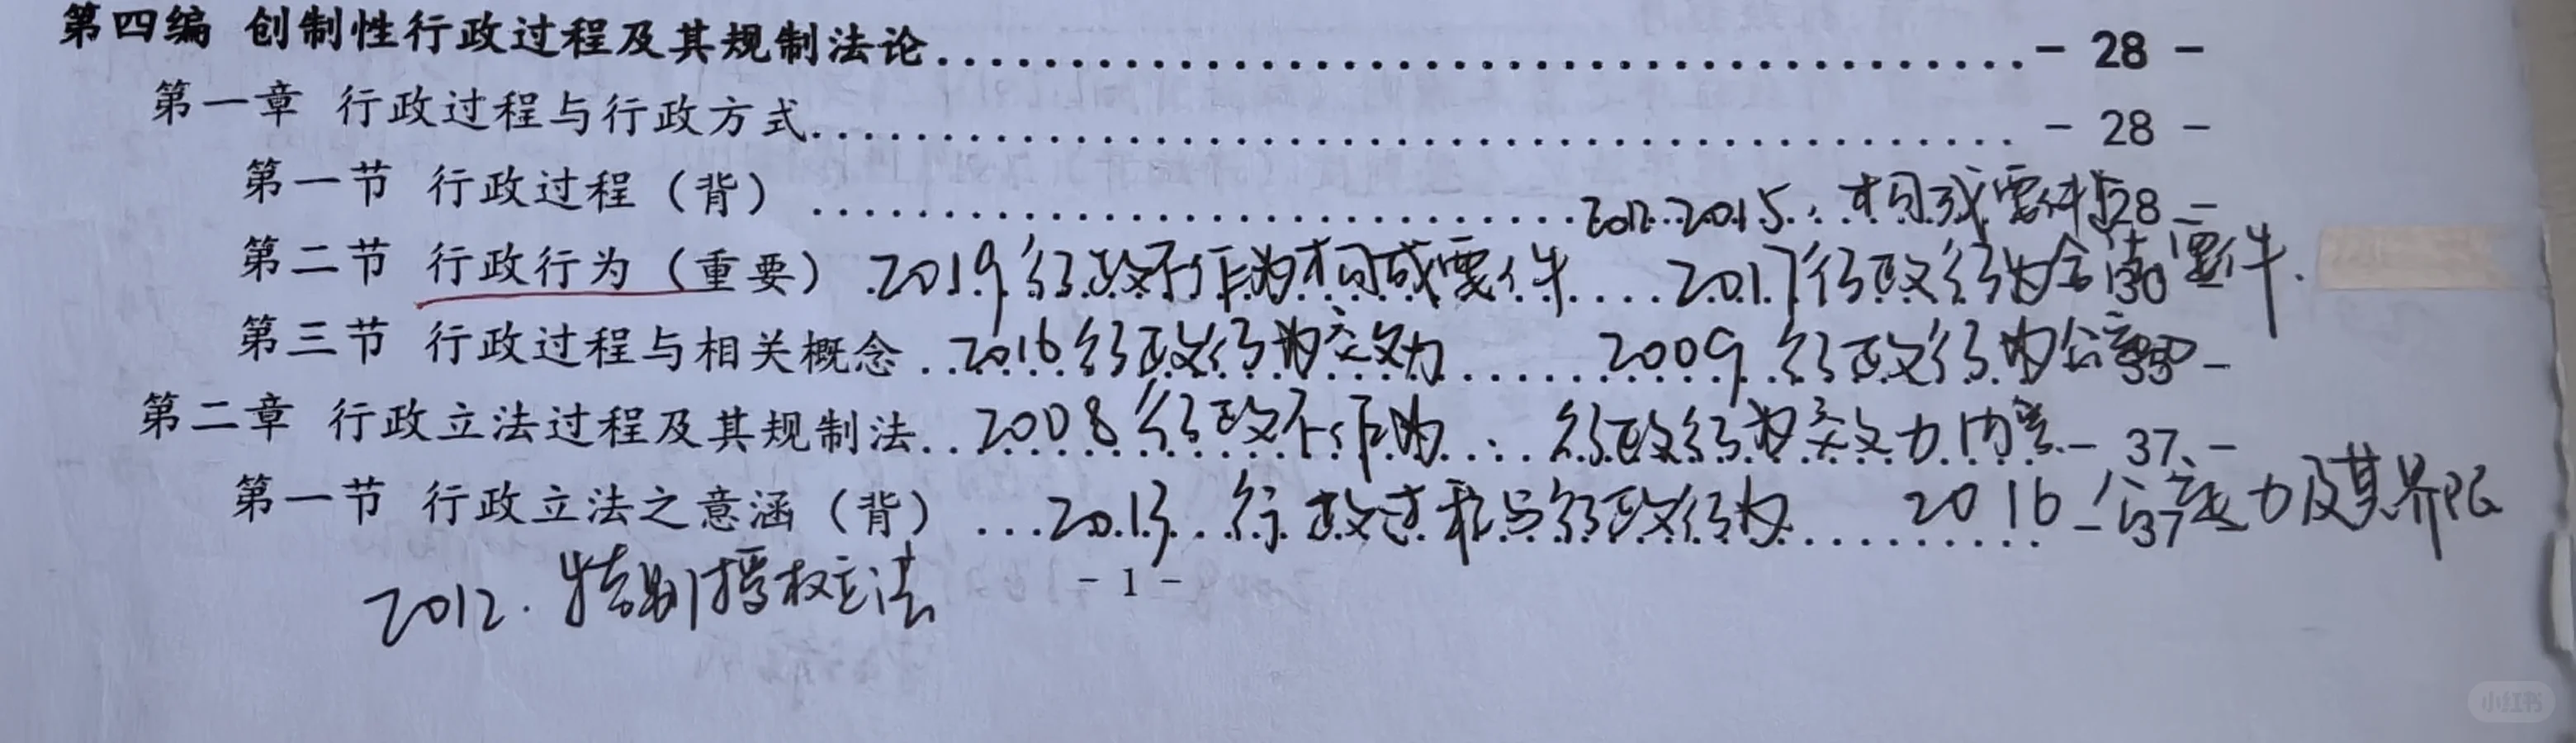 第四编 创制性行政过程及其规制法论 - 28 -
第一章 行政过程与行政方式 - 28 -
第一节 行政过程（背） 2012. 2015. 构成要件 28 -
第二节 行政行为（重要） 2019 行政不作为构成要件 2017 行政行为合法要件. 30
第三节 行政过程与相关概念 2016 行政行为效力 2009 行政行为公定 -
第二章 行政立法过程及其规制法 2008 行政不作为 行政行为效力内容 - 37 -
第一节 行政立法之意涵（背） 2013 行政过程与行政行为 2016 公定力及其界限 - 37
2012. 特别授权立法
- 1 -
小红书